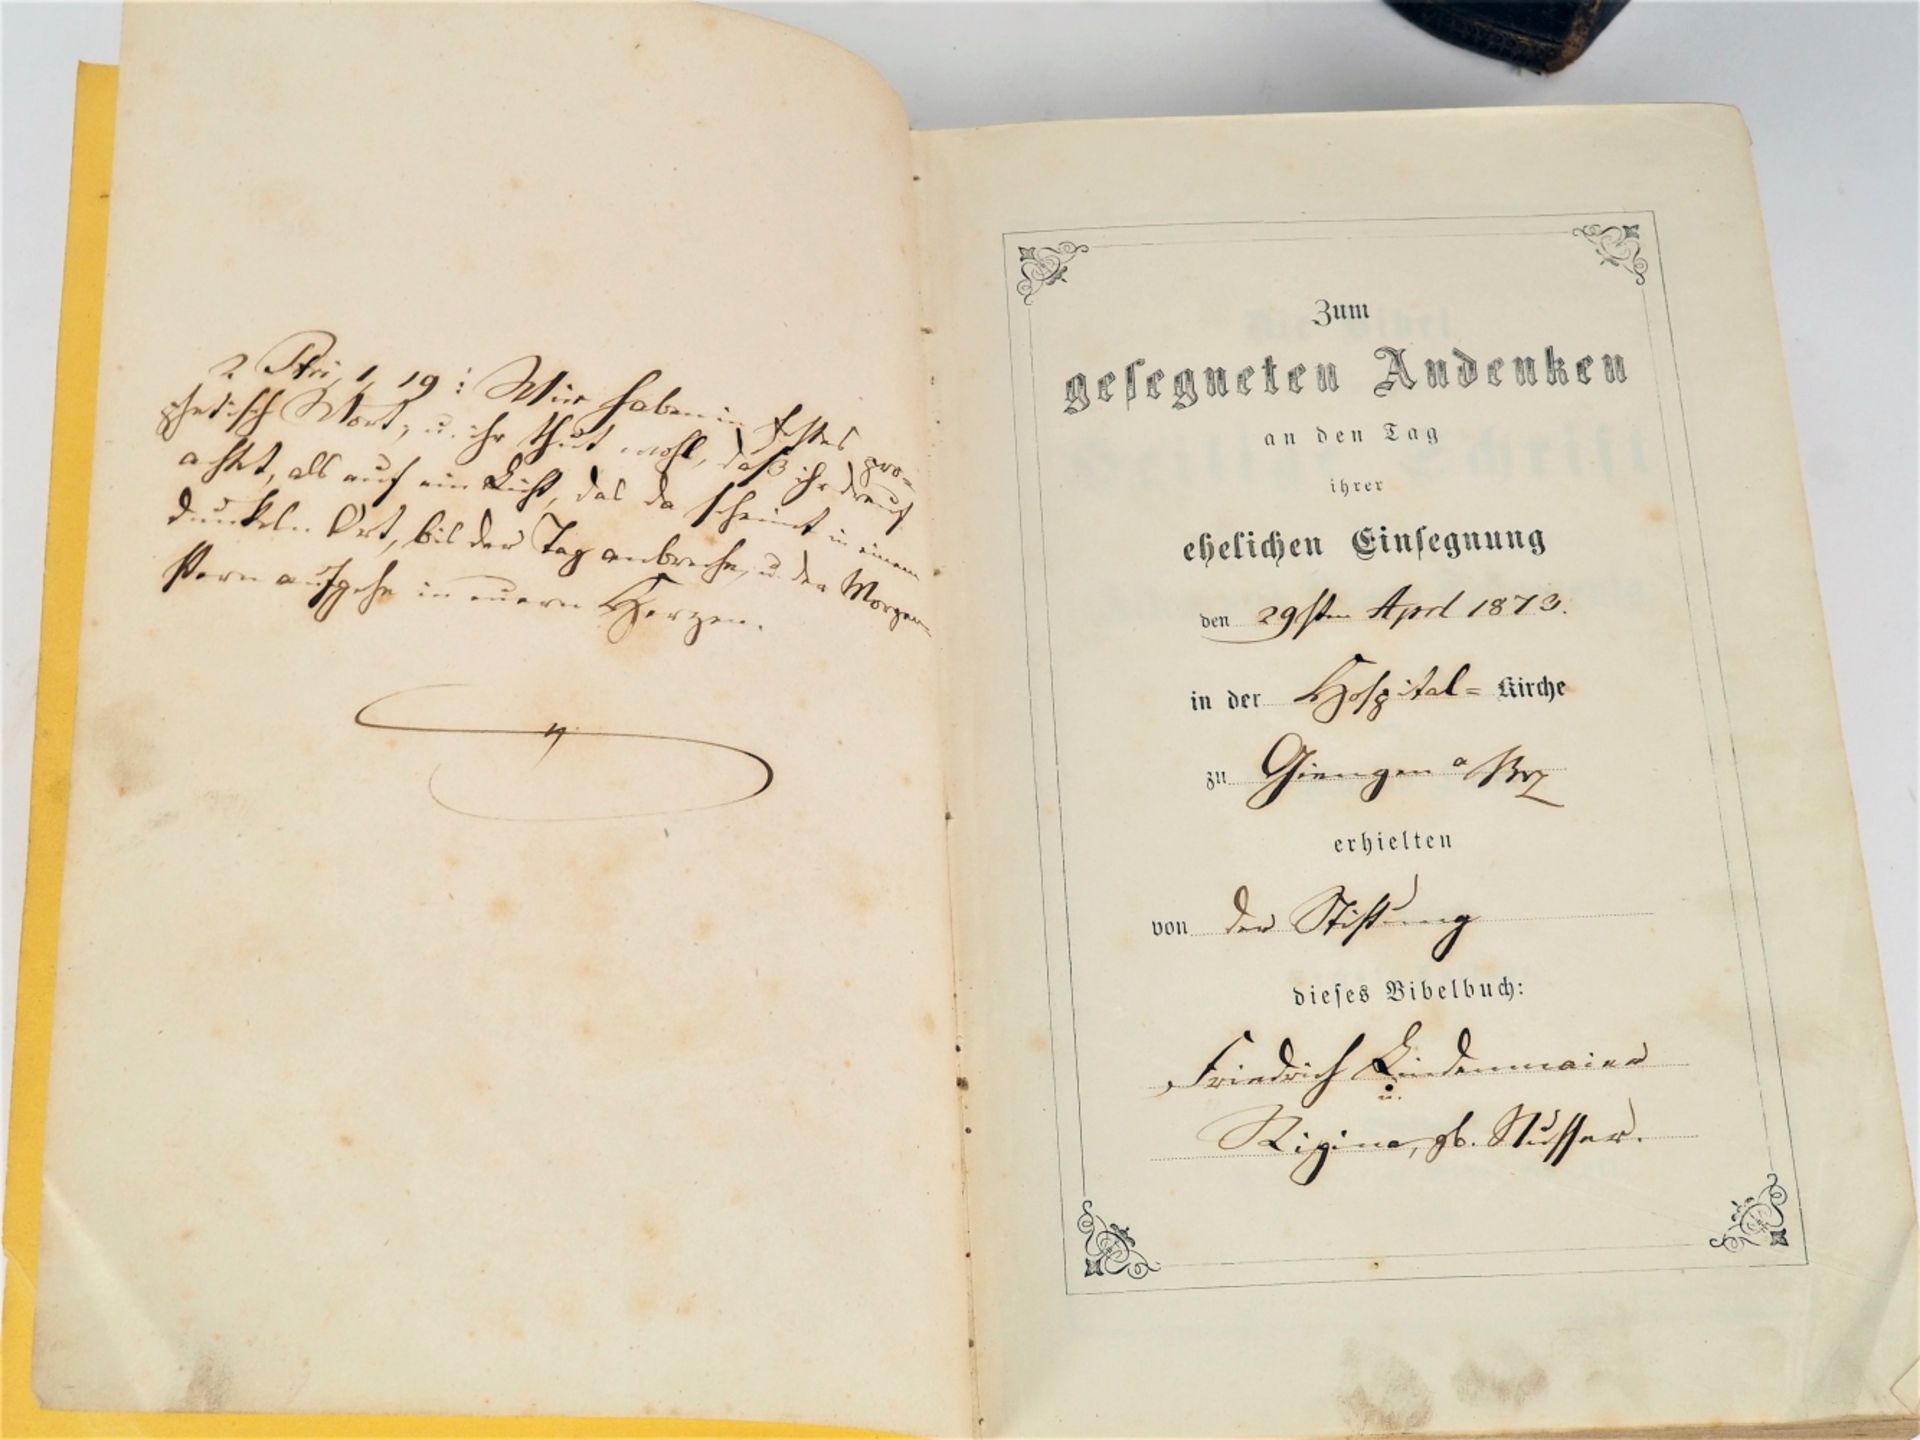 2 Petri, 1, 19: Wir haben ein festes pro-
phetisch Wort, u. ihr thut wohl, daß ihr drauf
achtet, als auf ein Licht, das da scheint in einem
dunkeln Ort, bis der Tag anbreche, u. der Morgen-
stern aufgehe in euern Herzen.
Zum
gesegneten Andenken
an den Tag
ihrer
ehelichen Einsegnung
den 29sten April 1873.
in der Hospital= Kirche
zu Giengen a/Brz
erhielten
von der Stiftung
dieses Bibelbuch:
Friedrich Lindenmaier
u.
Regina, gb. Nusser.